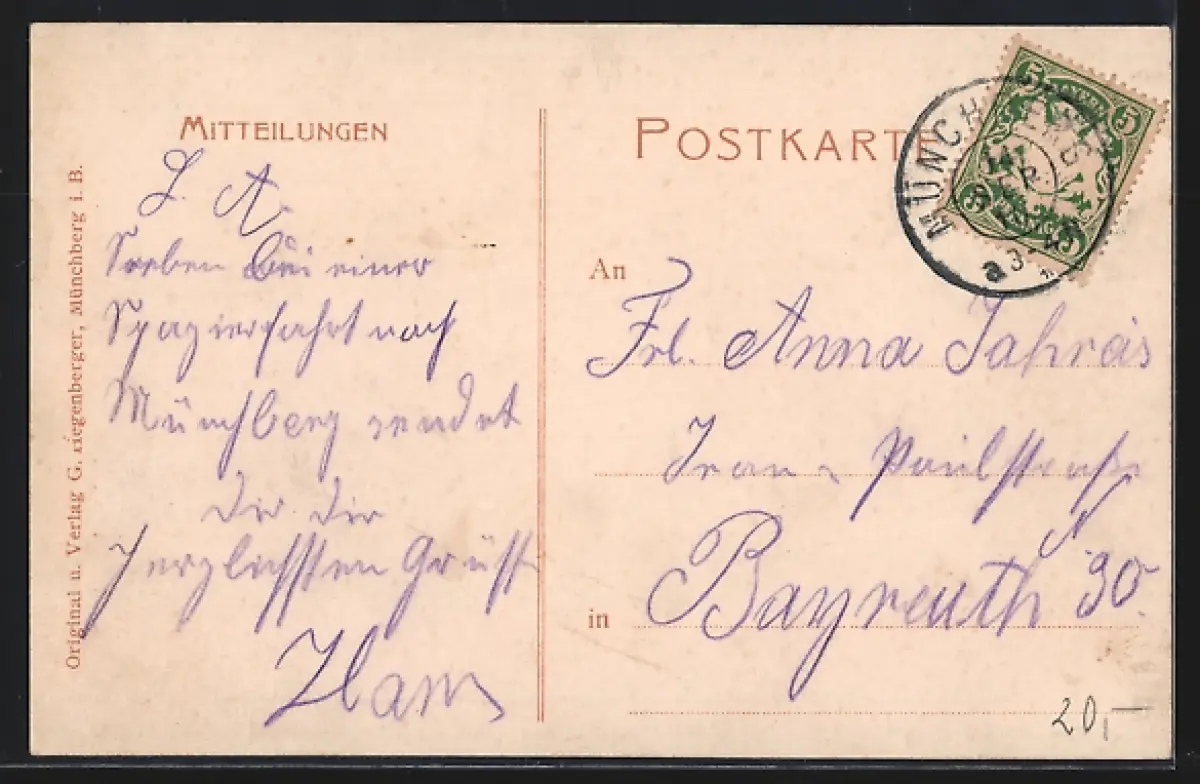 MITTEILUNGEN
L. A.
Soeben bei einer
Spazierfahrt nach
Münchberg sendet
Dir die
herzlichsten Grüsse
Hans
Original u. Verlag G. Riegenberger, Münchberg i. B.
POSTKARTE
MÜNCHBERG
5 5
5 5
a
3
An
Frl. Anna Jahreis
Jean-Paulstraße
in Bayreuth 30
20,–